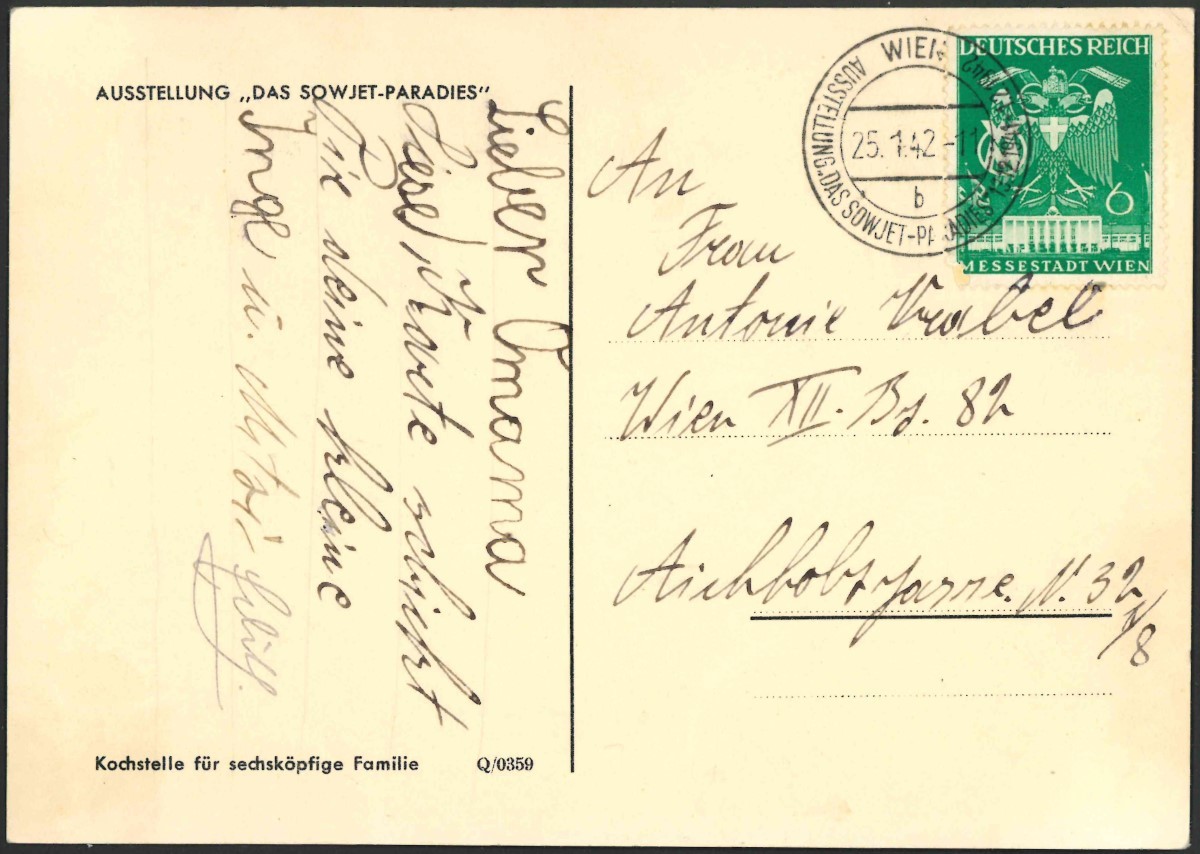 AUSSTELLUNG „DAS SOWJET-PARADIES"
Lieber Omama
Diese Karte schickt
Dir deine kleine
Inge u. Mutti
Kochstelle für sechsköpfige Familie Q/0359
WIEN
25. 1. 42 -11
b
AUSSTELLUNG "DAS SOWJET-PARADIES"
DEUTSCHES REICH
6
MESSESTADT WIEN
An
Frau
Antonie Vrabel
Wien XII. Bz. 82
gasse N. 32
8